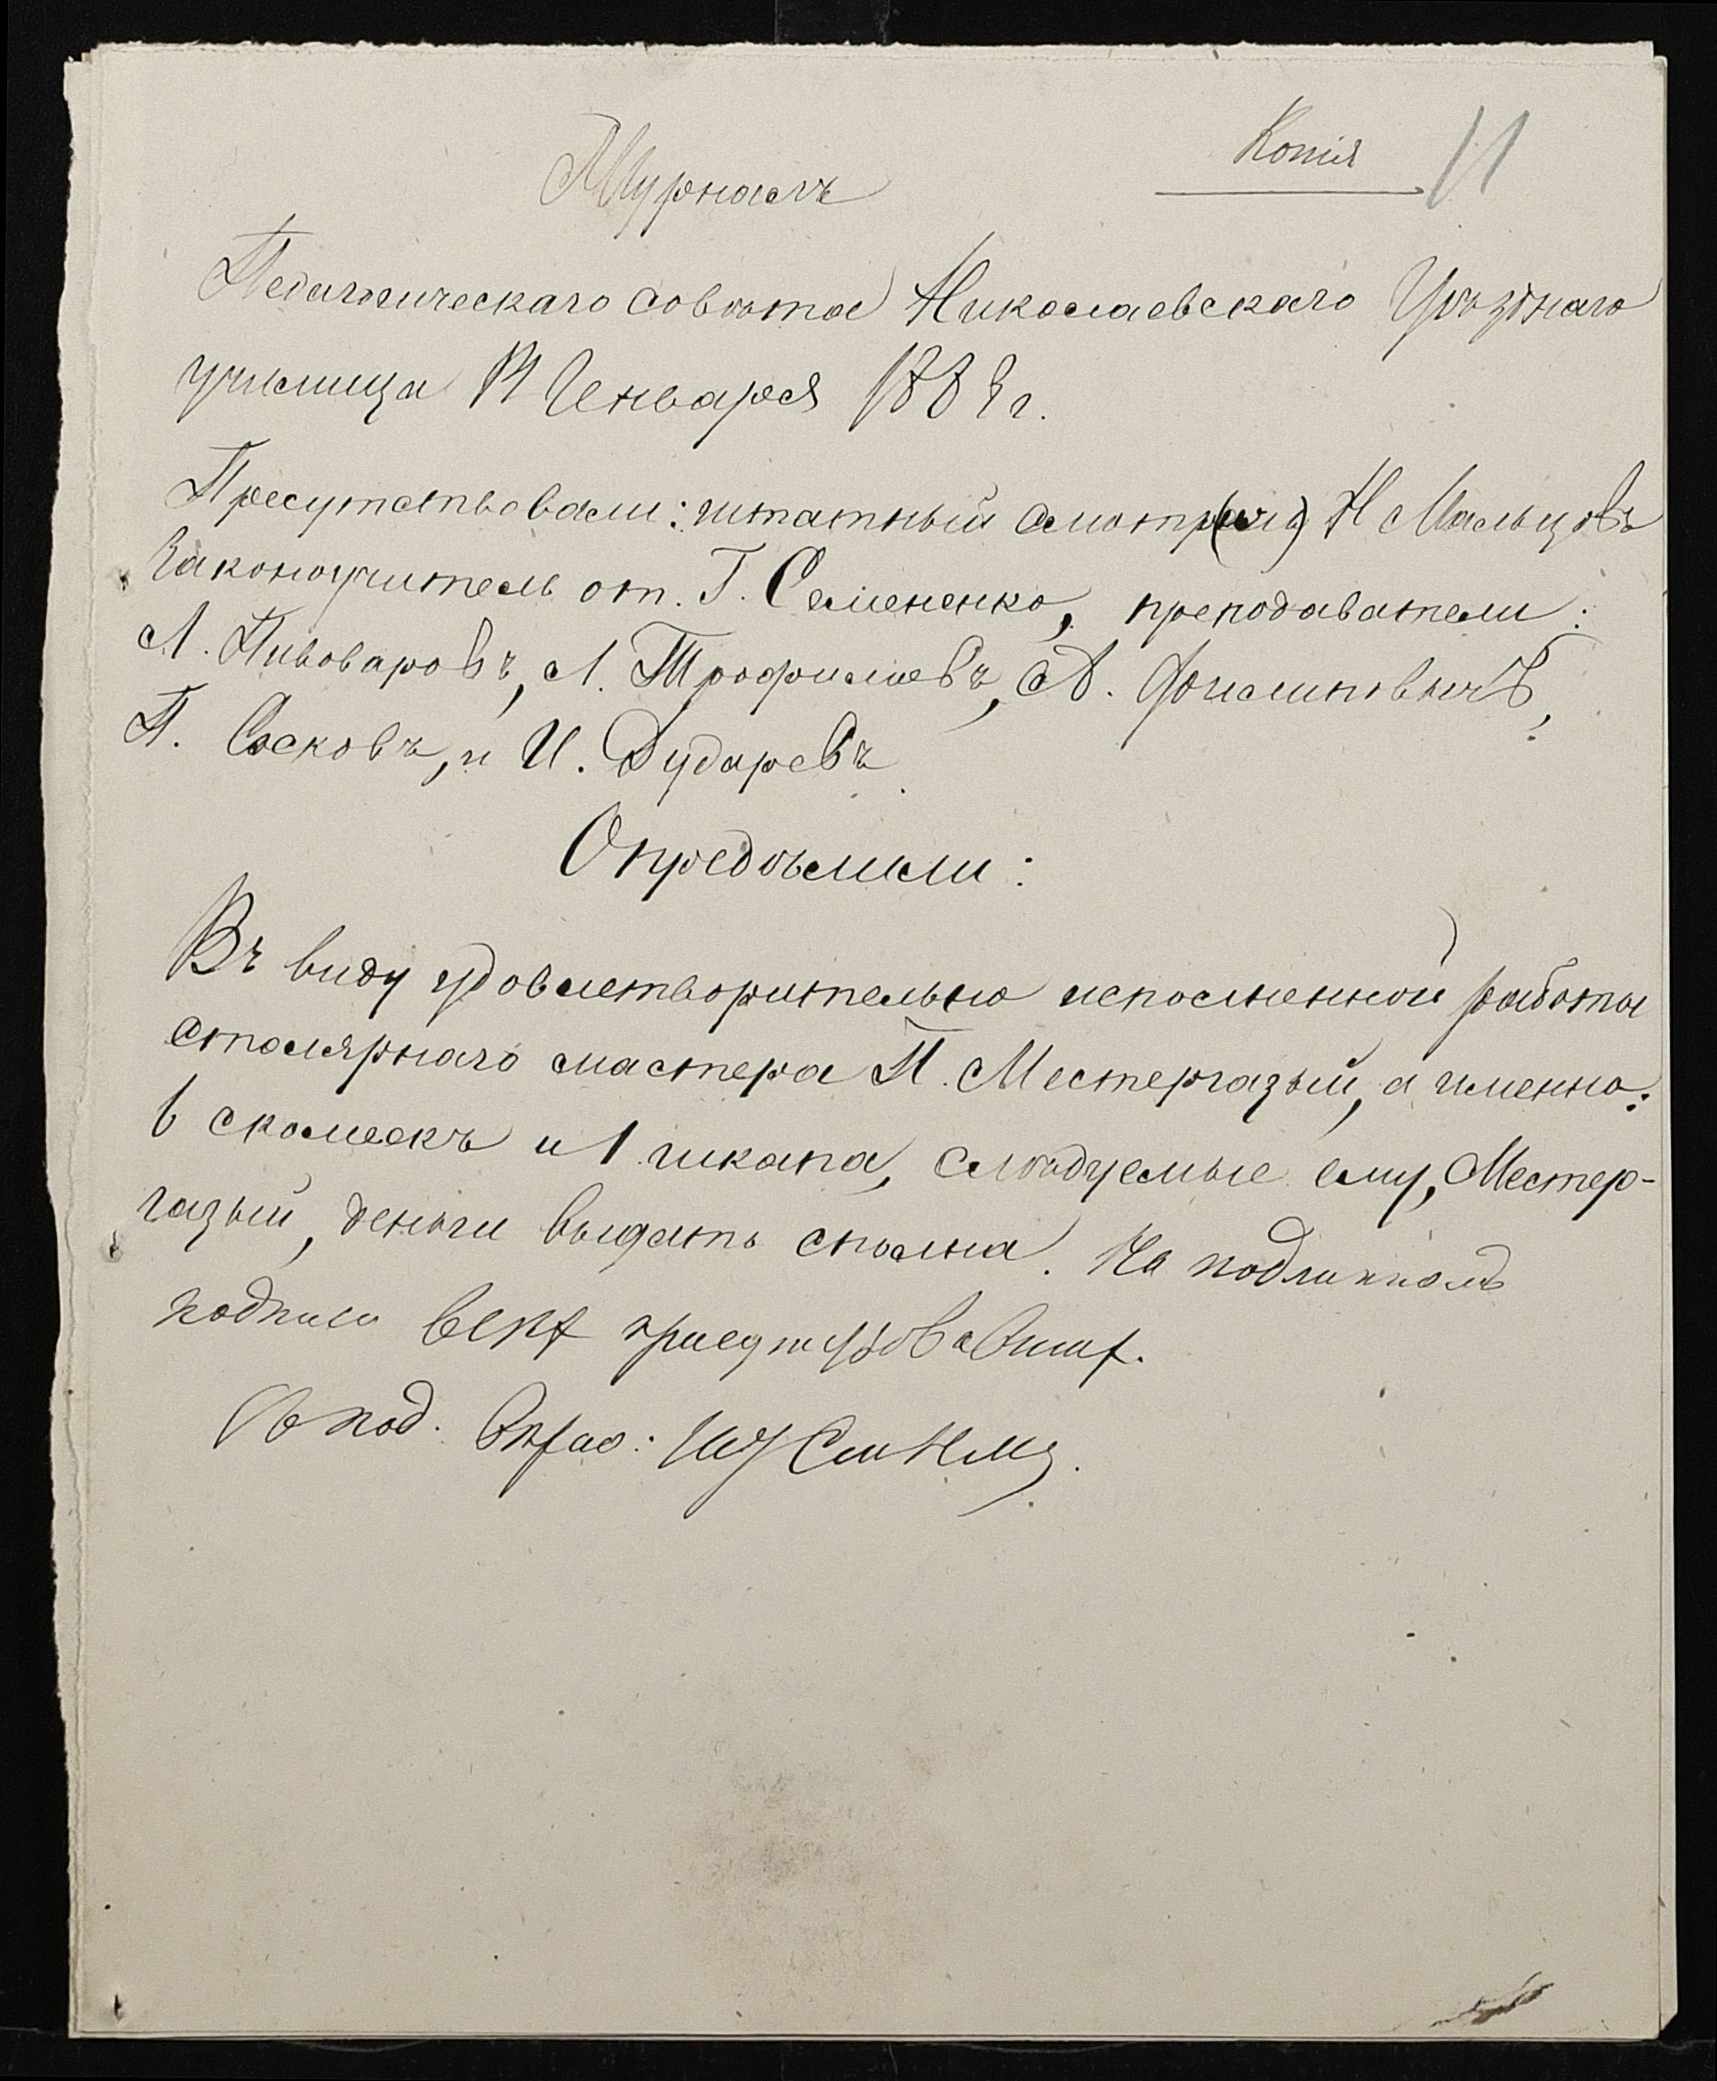 Копія 11
Журналъ
Педагогическаго совѣта Николаевскаго Уѣзднаго
училища Генваря 188 г.
Пресутствовали: штатный смотр(ич) Н Мальцовъ
Законоучитель от. Г. Семененко, преподаватели:
Л. Пивоваровъ, Л. Трофимовъ, А. Филиповичъ,
П. Сосковъ, и И. Дударевъ.
Опредѣлили:
Въ виду удовлетворительно исполненной работы
столярнаго мастера П. Местергазый, а именно:
6 скамеекъ и 1 шкапа, слѣдуемые ему, Местер-
газый, деньги выдать сполна. На подлинномъ
подписи всѣх присутствовавших.
Съ под. вѣрно: